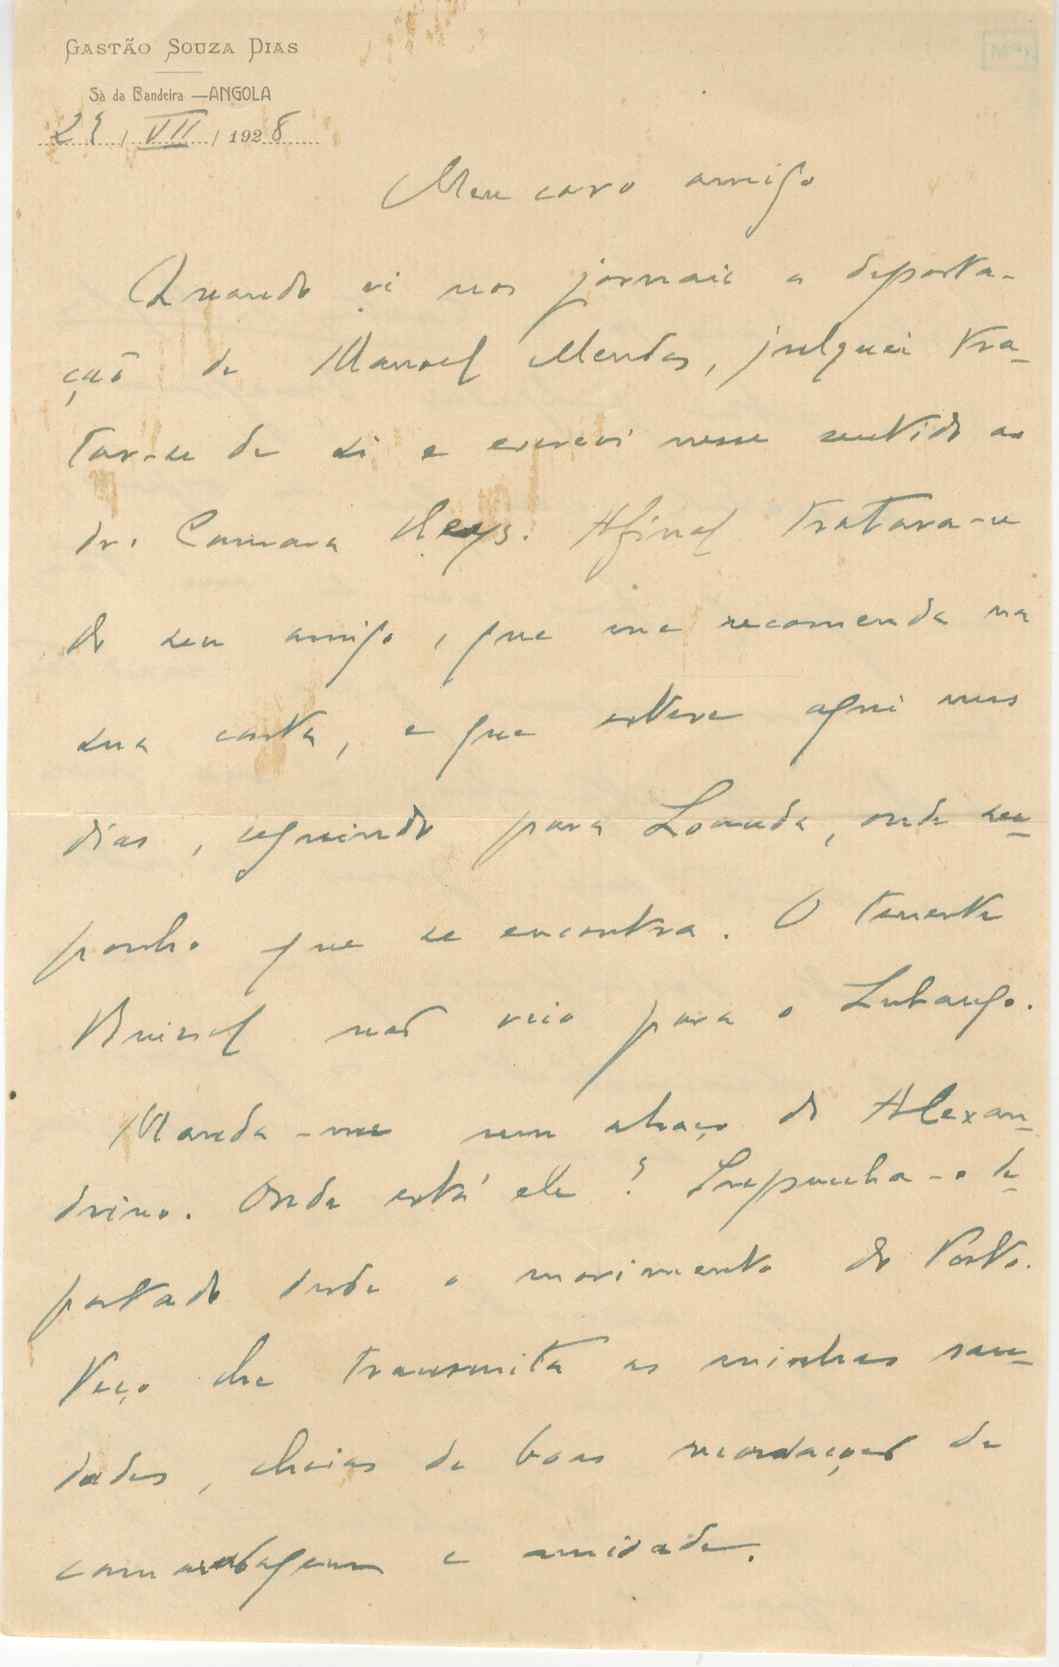 GASTÃO SOUZA DIAS
Sá da Bandeira — ANGOLA
29 / VII / 1928
Meu caro amigo
Quando vi nos jornais a deporta-
ção de Manoel Mendes, julguei tra-
tar-se de si e escrevi nesse sentido ao
dr. Camara Reys. Afinal tratava-se
do seu amigo, que me recomenda na
sua carta, e que esteve aqui uns
dias, seguindo para Loanda, onde su-
ponho que se encontra. O tenente
não veio para o Lubango.
Manda-me um abraço do Alexan-
drino. Onde está ele? Supunha-o de-
portado desde o movimento do Porto.
Peço lhe transmita as minhas sau-
dades, cheias de boas recordações de
camaradagem e amizade.